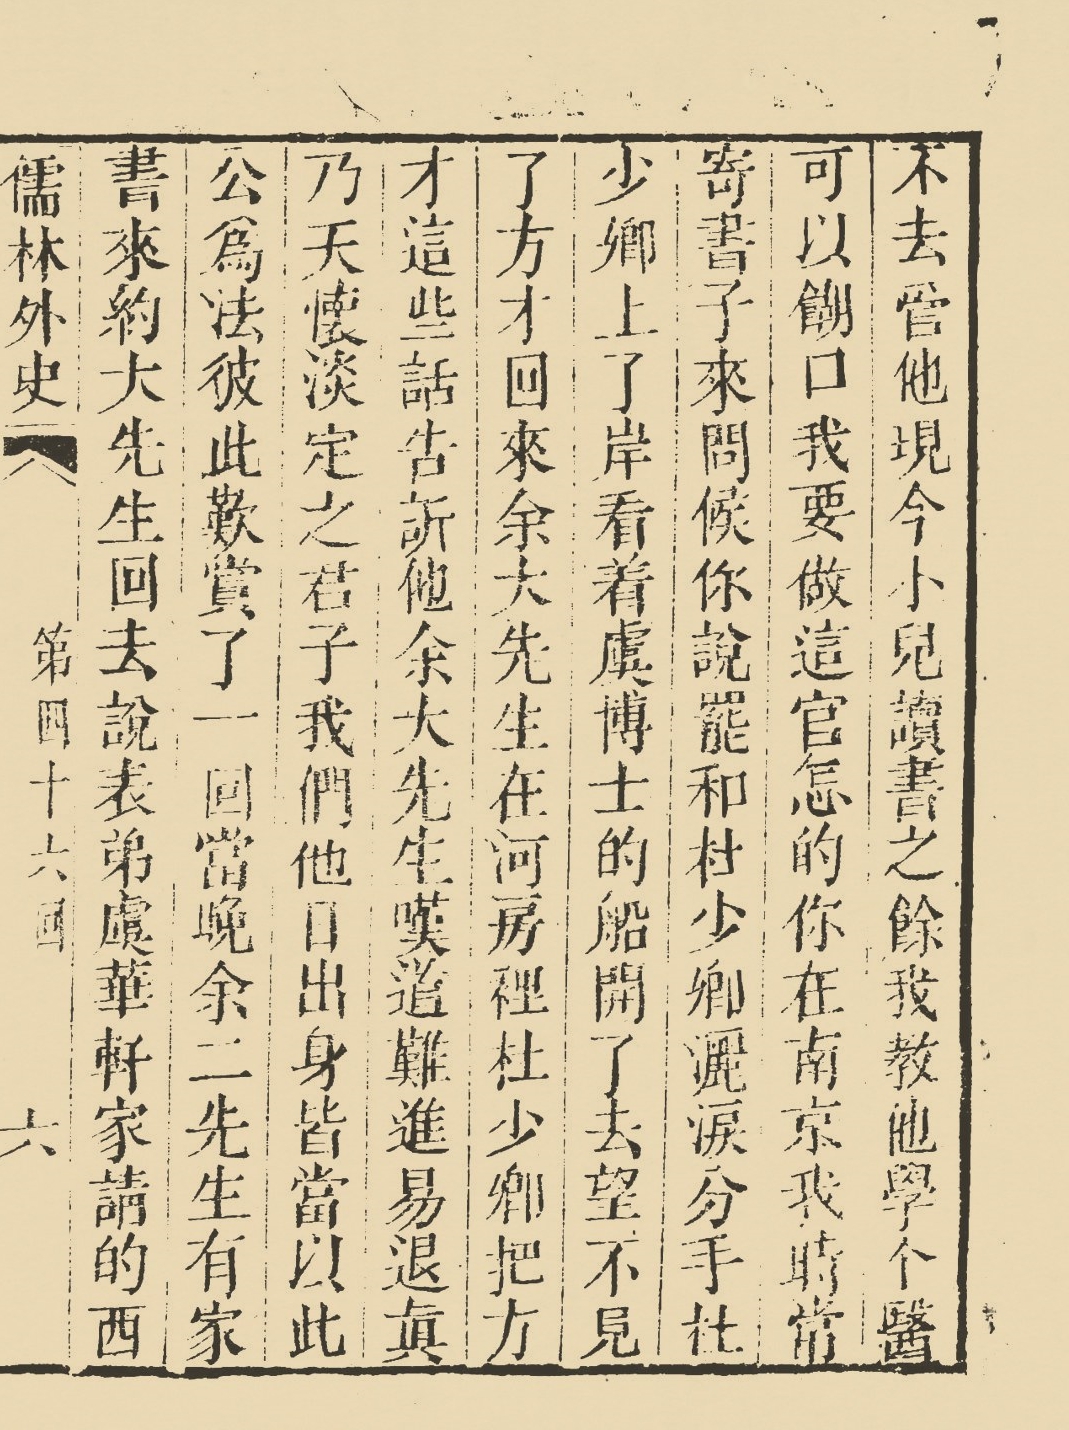 不去管他現今小兒讀書之餘我教他學个醫
可以餬口我要做這官怎的你在南京我時常
寄書子來問候你說罷和杜少卿灑淚分手杜
少卿上了岸看着虞博士的船開了去望不見
了方才回來余大先生在河房裡杜少卿把方
才這些話告訴他余大先生嘆道難進易退真
乃天懷淡定之君子我們他日出身皆當以此
公爲法彼此歎賞了一回當晚余二先生有家
書來約大先生回去說表弟虞華軒家請的西
儒林外史 第四十六回 六